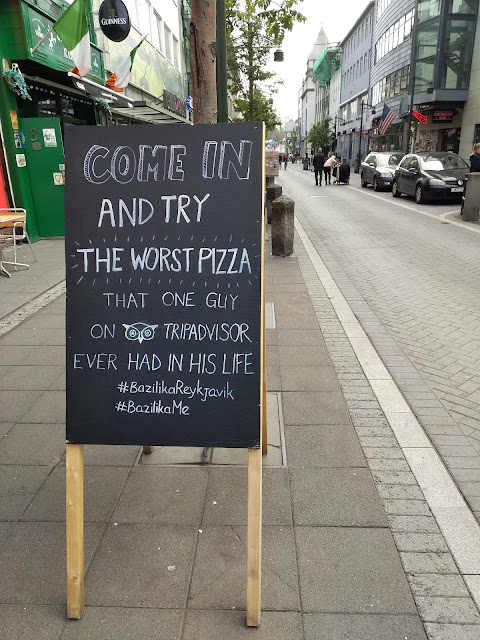 GUINNESS
COME IN
AND TRY
THE WORST PIZZA
THAT ONE GUY
ON TRIPADVISOR
EVER HAD IN HIS LIFE
#BazilikaReykjavik
#BazilikaMe